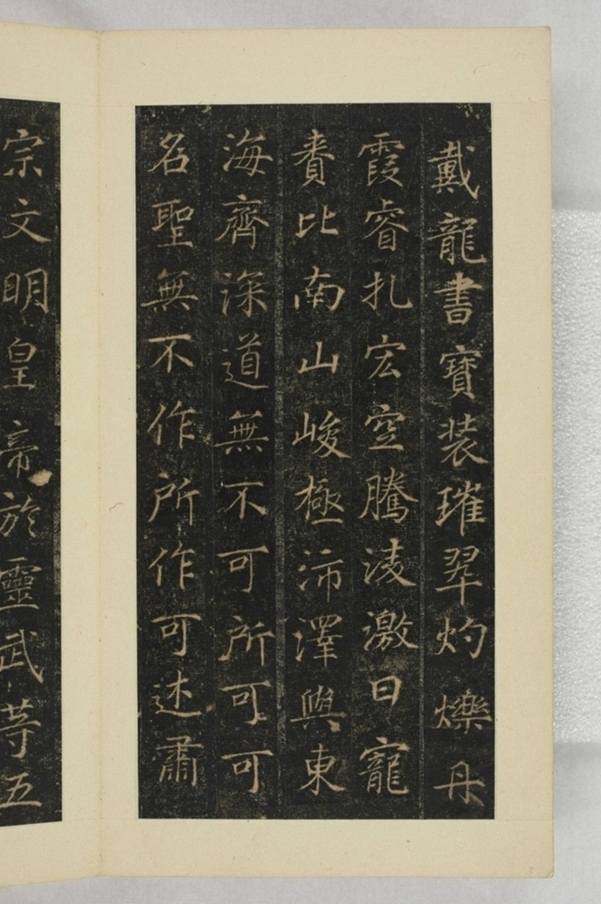 戴龍書寶裝璀翠灼爍丹
霞睿扎宏空騰淩激日寵
賚比南山峻極沛澤與東
海齊深道無不可所可可
名聖無不作所作可述肅
宗文明皇帝於靈武等五